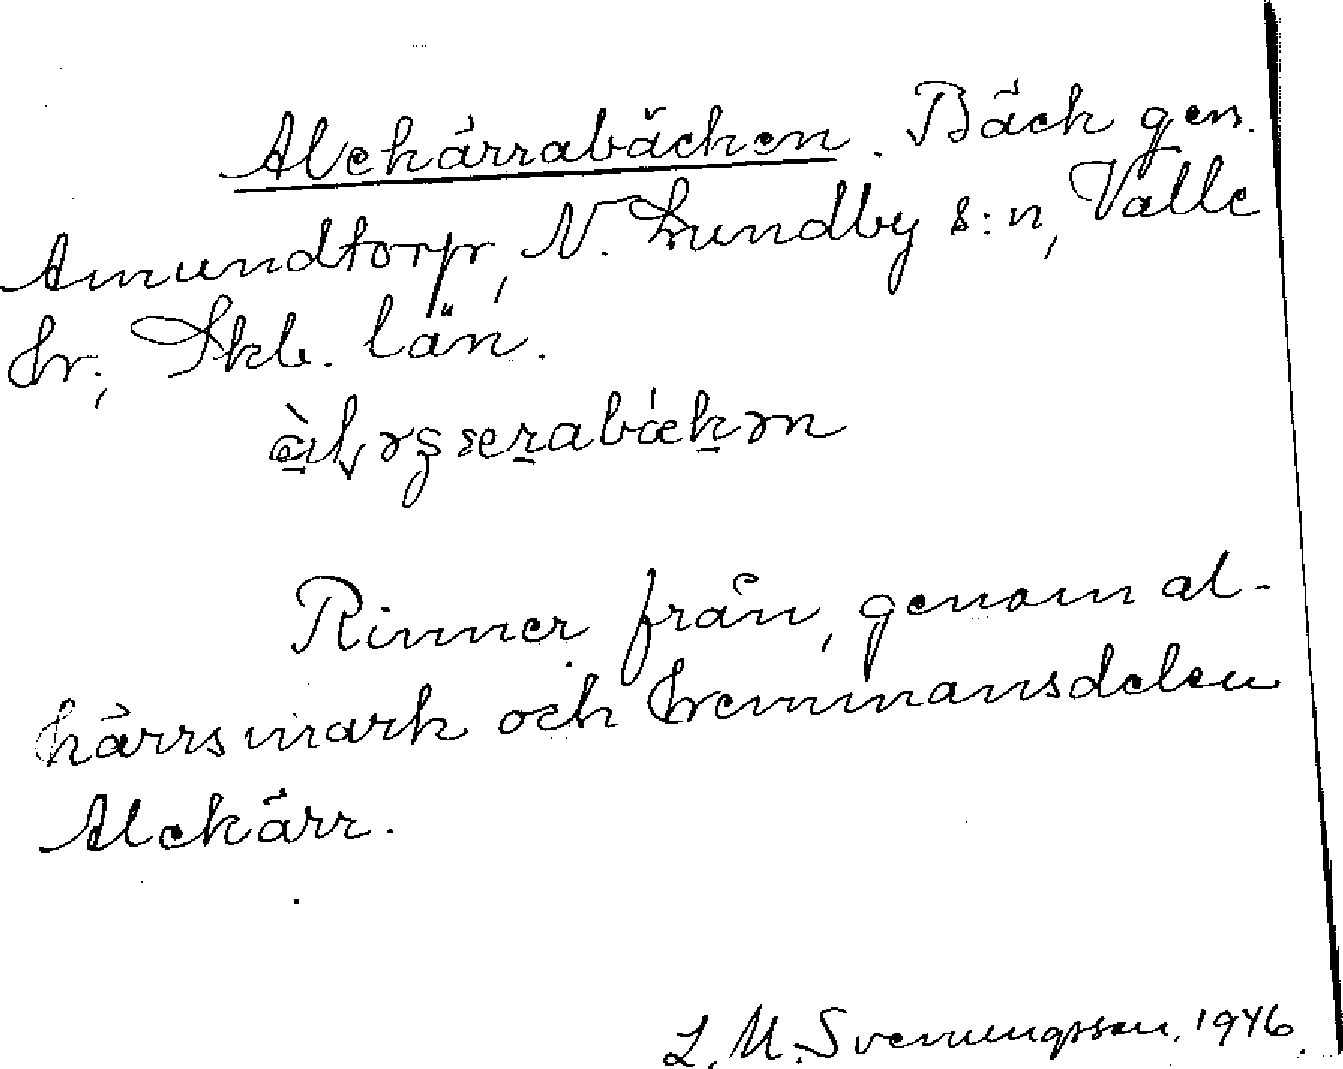 Alekärrabäcken. Bäck gm.
Amundtorp, N. Lundby s:n, Valle
hr; Skb. län.
Rinner från, genom al-
kärrsmark och hemmansdelen
Alekärr.
L. M. Svenungsson. 1946.